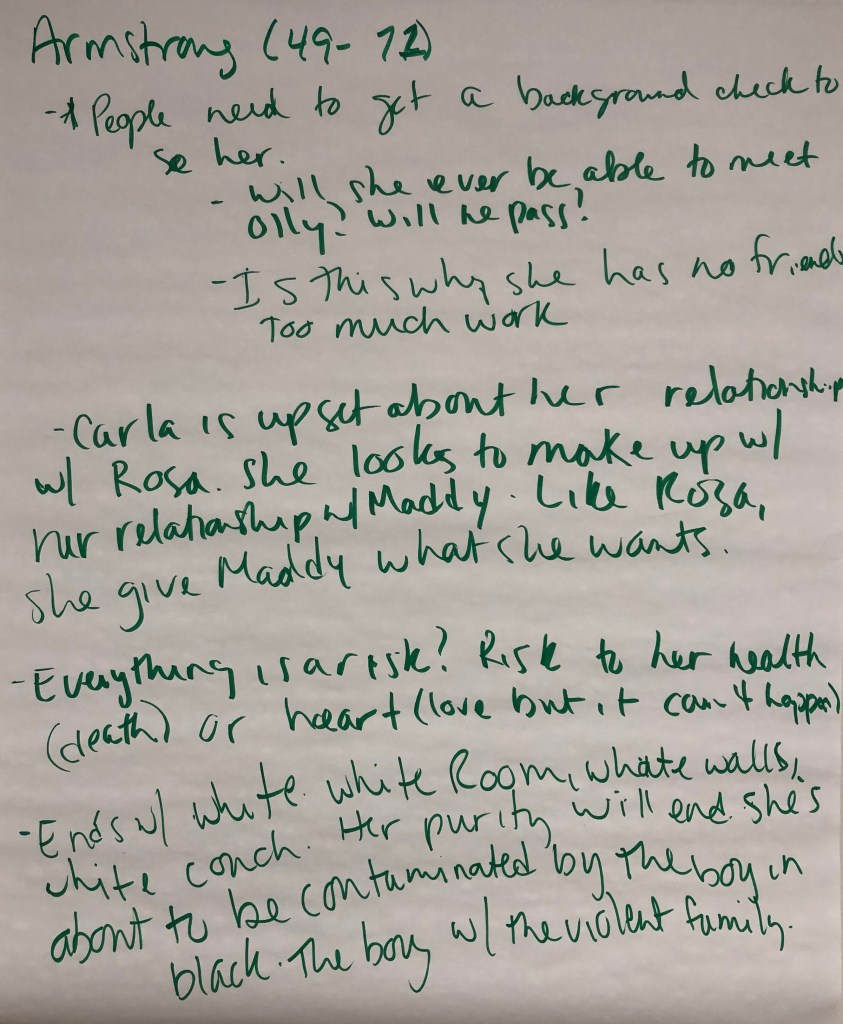 Armstrong (49-72)
-* People need to get a background check to
se her.
- Will she ever be able to meet
Olly? Will he pass?
- Is this why she has no friends
Too much work
- Carla is upset about her relationship
w/ Rosa. She looks to make up w/
her relationship w/ Maddy. Like Rosa,
she give Maddy what she wants.
- Everything is a risk? Risk to her health
(death) or heart (love but it can't happen)
- Ends w/ white. White Room, white walls,
white couch. Her purity will end. She's
about to be contaminated by the boy in
black. The boy w/ the violent family.